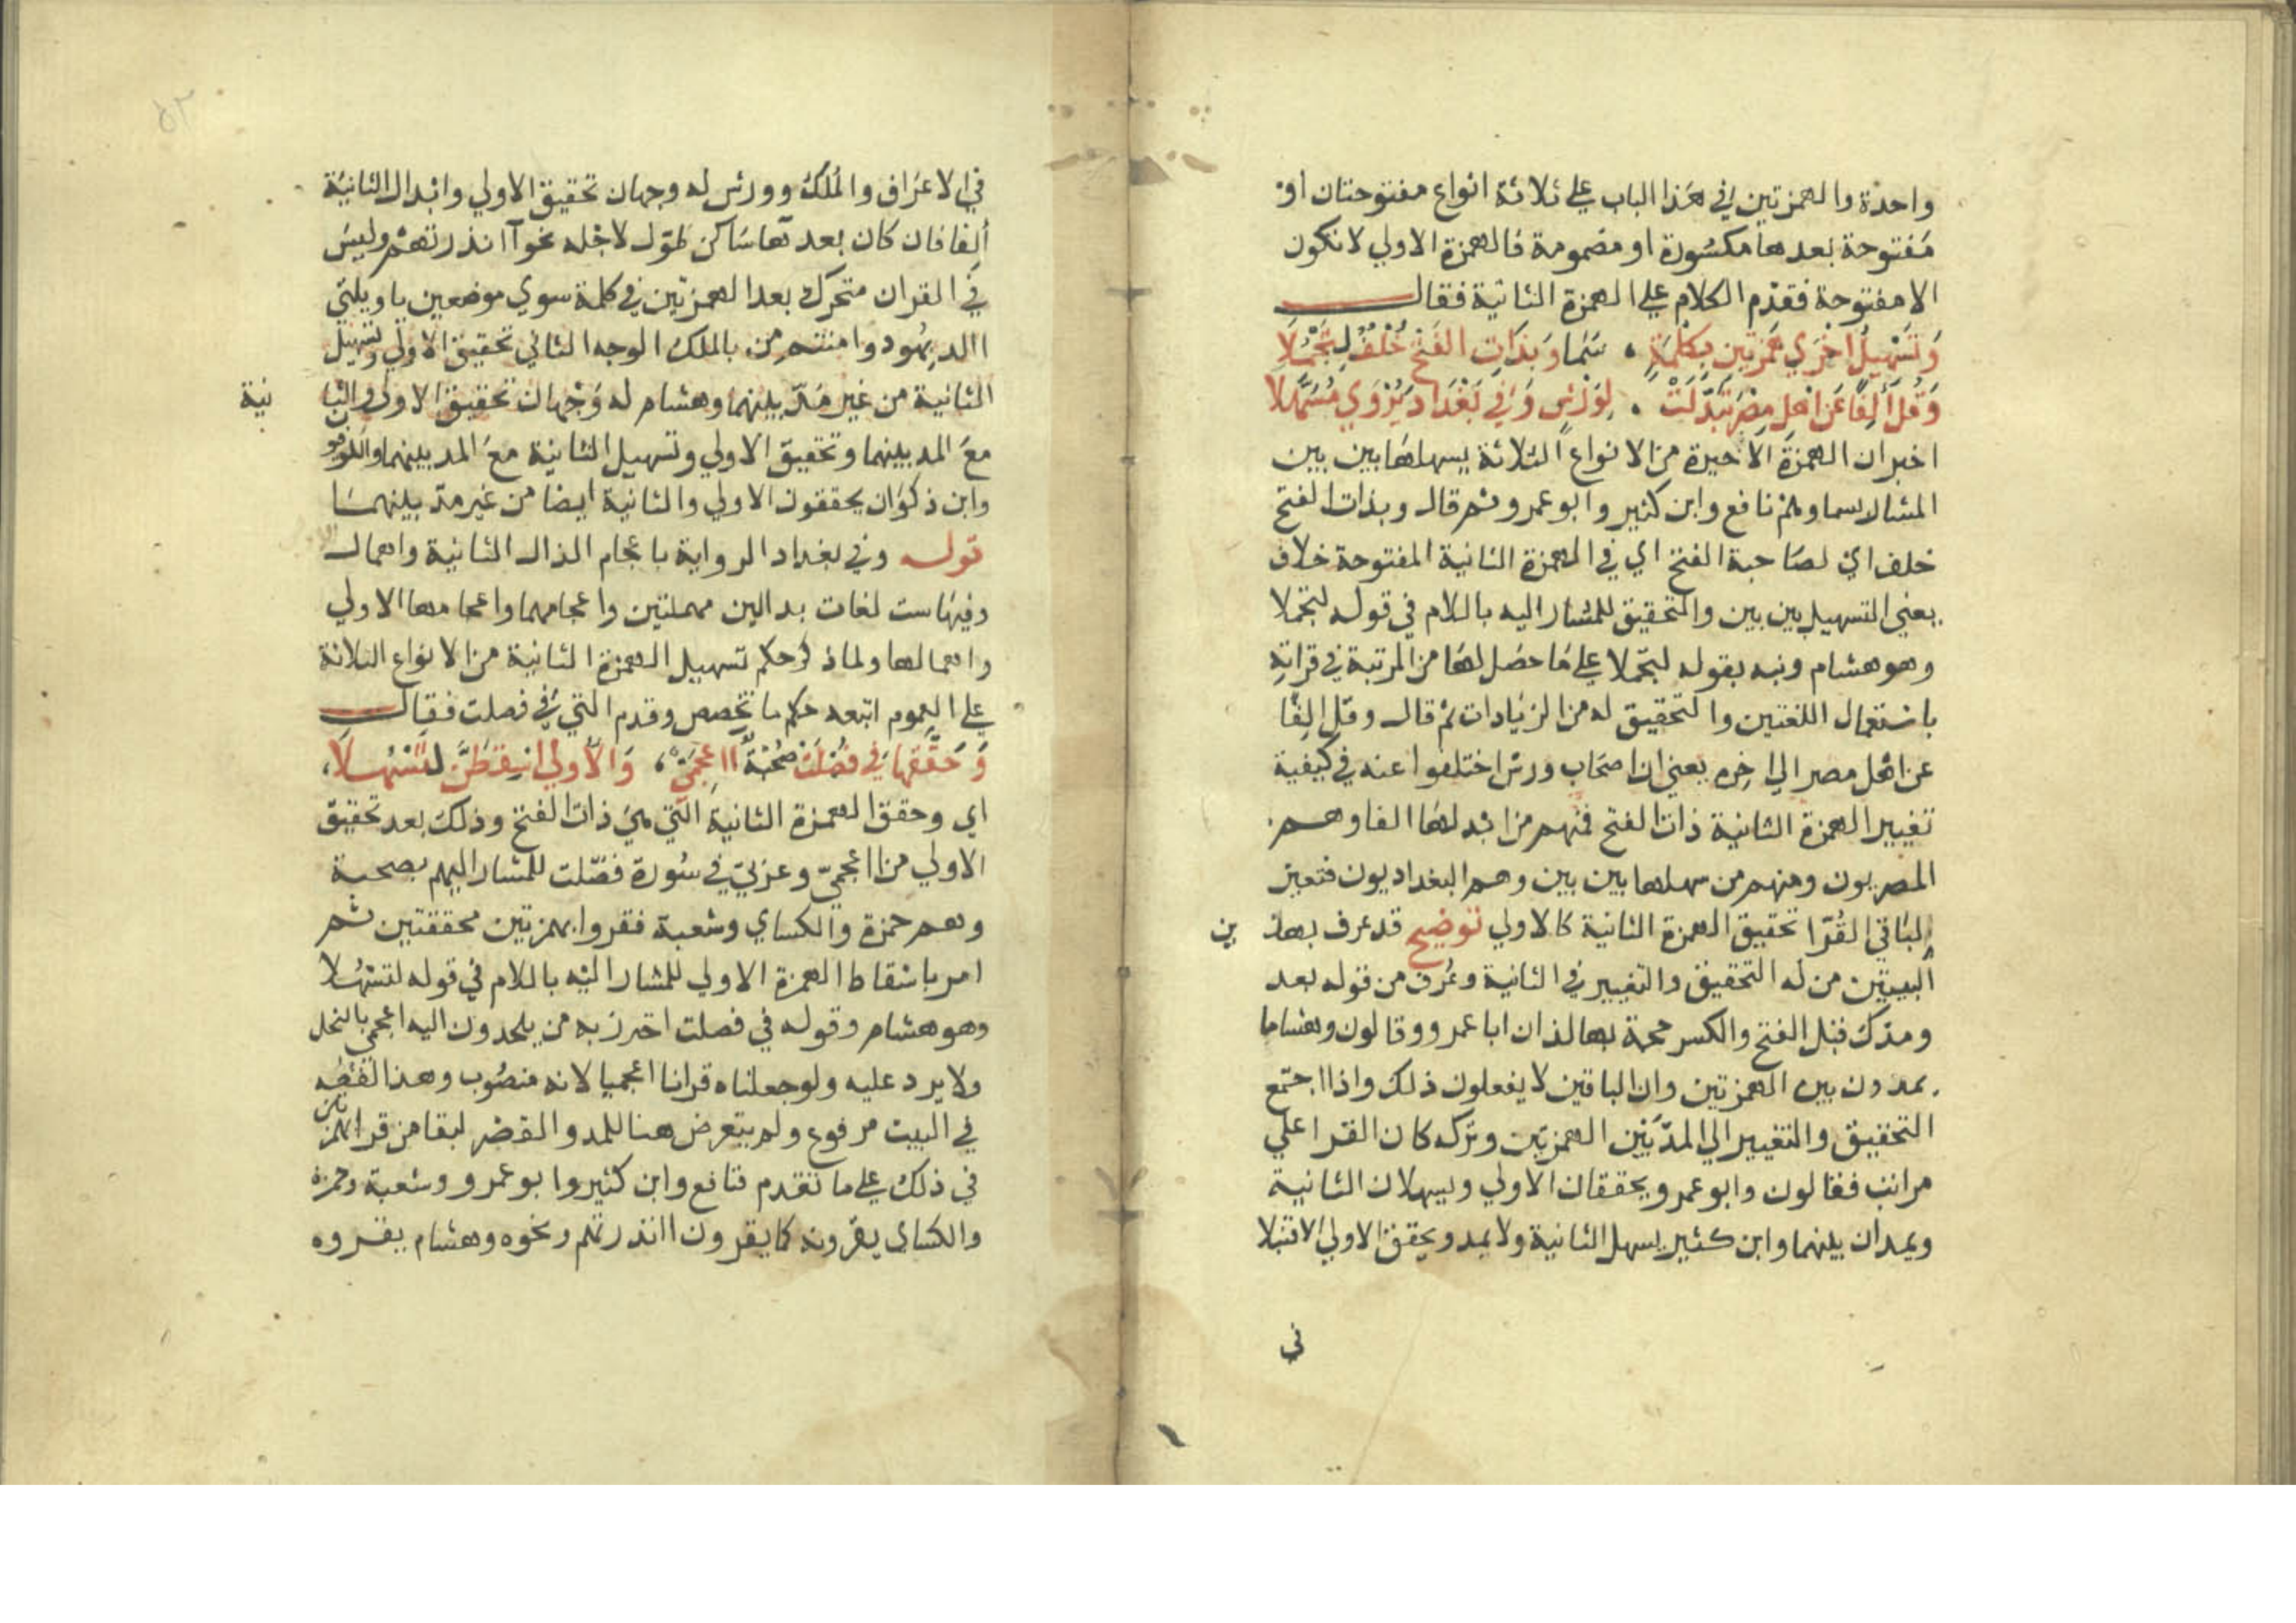 واحدة والهمزتين في هذا الباب على ثلاثة انواع مفتوحتان او
مفتوحة بعدها مكسورة او مضمومة فالهمزة الاولي لا تكون
الا مفتوحة فقدم الكلام علي الهمزة الثانية فقال
وَتَسْهِيلُ اخْرَي هَمْزَتَينِ بِكِلْمَةٍ ، سَمَا وَبِذَاتِ الفَتْحِ خُلْفٌ لِتَجْمُلَا
وَقُلْ أَلِفًا عَنْ اهْلِ مِصْرَ تَبَدَّلَتْ . لِوَرْشٍ وَفِي بَغْدَاد يُرْوَي مُسَهَّلَا
اخبر ان الهمزة الاخيرة من الانواع الثلاثة يسهلها بين بين
المشار لهم بسما وهم نافع وابن كثير وابو عمرو ثم قال وبذات الفتح
خلف اي لصاحبة الفتح اي في الهمزة الثانية المفتوحة خلاف
يعني التسهيل بين بين والتحقيق للمشار اليه باللام في قوله لتجملا
وهو هشام ونبه بقوله لتجملا علي ما حصل لها من المرتبة في قراته
باستعمال اللغتين والتحقيق له من الزيادات ثم قال وقل الفا
عن اهل مصر الي اخره يعني ان اصحاب ورش اختلفوا عنه في كيفية
تغيير الهمزة الثانية ذات الفتح فمنهم من ابدلها الفا وهم
المصريون ومنهم من سهلها بين بين وهم البغداديون فتعين
لباقي القرا تحقيق الهمزة الثانية كالاولي توضيح قد عرف بهذ ين
البيتين من له التحقيق والتغيير في الثانية وعرف من قوله بعد
ومدك قبل الفتح والكسر حجة بها لذ ان ابا عمرو وقالون وهشاما
يمدون بين الهمزتين وان الباقين لا يفعلون ذلك واذا اجتمع
التحقيق والتغيير الي المد بين الهمزتين وتركه كان القرا علي
مراتب فقالون وابو عمرو يحققان الاولي ويسهلان الثانية
ويمدان بينهما وابن كثير يسهل الثانية ولا يمد ويحقق الاولي الا قنبلا
في
في الاعراف والملك وورش له وجهان تحقيق الاولي وابدال الثانية
ألفا فان كان بعدها ساكن طول لاجله نحو آانذرتهم وليس
في القران متحرك بعد الهمزتين في كلمة سوي موضعين يا ويلتي
االد بهود وامنتم من بالملك الوجه الثاني تحقيق الاولي وتسهيل
الثانية من غير مد بينهما وهشام له وجهان تحقيق الاولي والثا نية
مع المد بينهما وتحقيق الاولي وتسهيل الثانية مع المد بينهما والكوفيون
وابن ذكوان يحققون الاولي والثانية ايضا من غير مد بينهما
قوله وفي بغداد الرواية باعجام الذال الثانية واهمال
وفيها ست لغات بدالين مهملتين واعجامهما واعجامها الاولي
واهمالها ولما ذكر حكم تسهيل الهمزة الثانية من الانواع الثلاثة
علي العموم اتبعه حكم ما تخصص وقدم التي في فصلت فقال
وَحَقَّقَهَا فِي فُصِّلَتْ صُحْبَةٌ ااعْجَمِيٌّ ، وَالاُولَي اسْقِطَنَّ لِتَسْهُلَا ،
اي وحقق الهمزة الثانية التي هي ذات الفتح وذلك بعد تحقيق
الاولي من ااعجمي وعربي في سورة فصلت للمشار اليهم بصحبة
وهم حمزة والكساي وشعبة فقروا بهمزتين محققتين ثم
امر باسقاط الهمزة الاولي للمشار اليه باللام في قوله لتسهلا
وهو هشام وقوله في فصلت احترز به من يلحدون اليه اعجمي بالنحل
ولا يرد عليه ولو جعلناه قرانا اعجميا لانه منصوب وهذا لفظه
في البيت مرفوع ولم يتعرض هنا للمد والقصر لبقا من قرا بهمزتين
في ذلك علي ما تقدم فنافع وابن كثير وابو عمرو وشعبة وحمزة
والكساي يقرونه كما يقرون اانذرتهم ونحوه وهشام يقروه